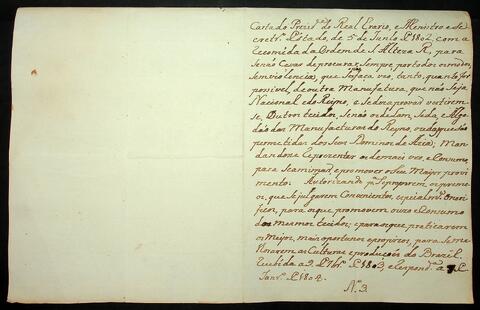 Carta do Prezid.e do Real Erario, e Ministro e Se
cretr.o d'Estado, de 5 de Junho d'1802, com a
recomenda da Ordem de S. Alteza R, para
Se não Cesar de procurar sempre por todos os modos,
Sem violencia, que Se faça uso, tanto, quanto for
possivel, de outra Manufatura, que não Seja
Nacional do Reyno, e Se dezaprovar vestirem
se, Outros tecidos, Se não os de Lam, Seda, e Algo
dão das Manufacturas do Reyno, ou daquelas
permetidas dos Seus Dominios da Azia; Man
dandose Reprezentar os de mais uzo, e Consumo,
para Se animar, e promover o Seu Maior provi
mento: Autorizando p.a Se proporem, os premi
os, que Se julgarem Convenientes, especialm.e Onori
ficos, para os que promoverem o uzo e Consumo
dos mesmos tecidos; e para os que praticarem
os Meyos, mais oportunos e proprios, para Se me
lhorarem as Culturas e producçoes do Brazil.
Recebida a 9 d' 7br.o d'1803, e Respond.a a 7 d'
Janr.o d'1804.
N.o 3.